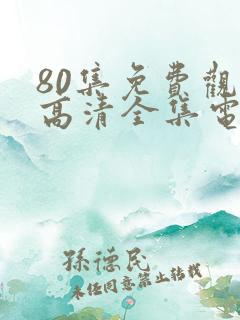 80集免費觀
高清全集電
孫德民
未经同意禁止转载